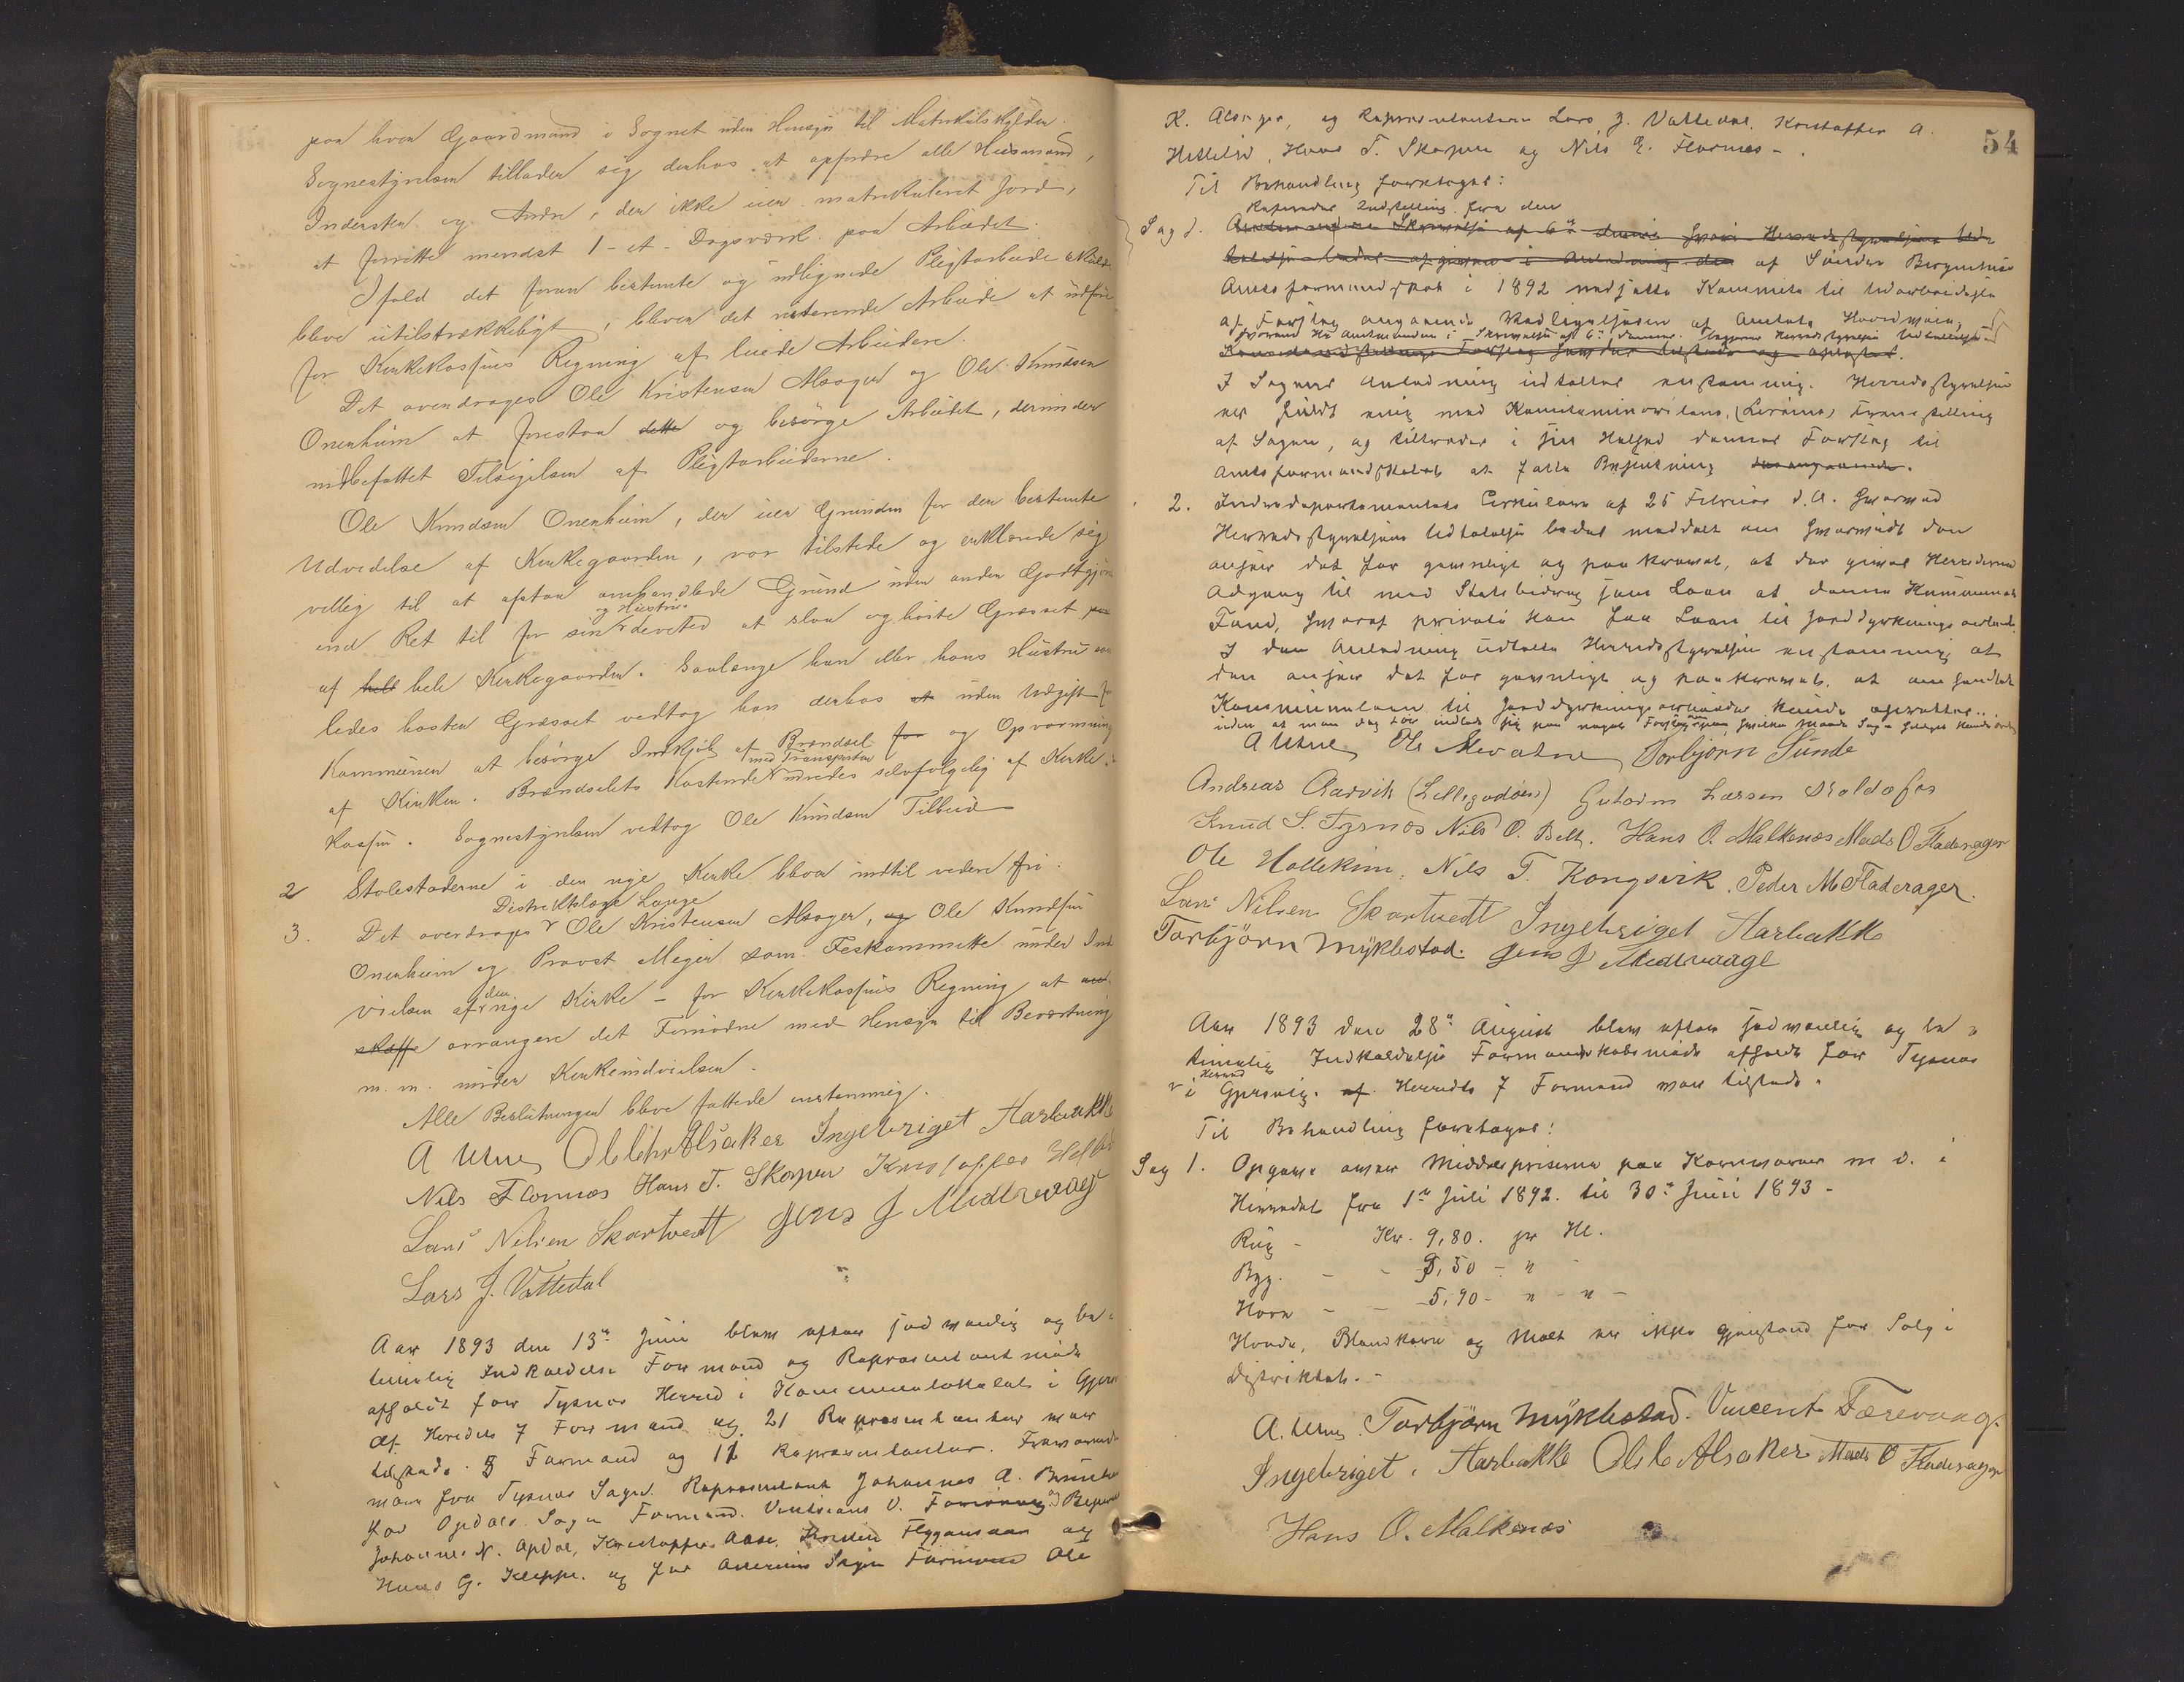 paa hver Gaardmand i Sognet uden Hensyn til Matrikulskylden.
Sognestyrelsen tillader sig derhos at opfordre alle Husmænd,
Inderster og Andre, der ikke eier matrikuleret Jord,
at forrette mindst 1 - et - Dagsværk paa Arbeidet.
Ifald det foran bestemte og udlignede Pligtarbeide skulde
blive utilstrækkeligt, bliver det resterende Arbeide at udføre
for Kirkekassens Regning af leiede Arbeidere.
Det overdrages Ole Kristensen Alsager og Ole Knudsen
Onenheim at forestaa dette og besørge Arbeidet, derunder
indbefattet Tilsigelsen af Pligtarbeiderne.
Ole Knudsen Onenheim, der eier Grunden for den bestemte
Udvidelse af Kirkegaarden, var tilstede og erklærede sig
villig til at afstaa omhandlede Grund uden anden Godtgjør
end Ret til for sin og Hustrus levetid at slaa og høste Græsset paa
af helt hele Kirkegaarden. Saalænge han eller hans Hustru saa
ledes høster Græsset vedtog han derhos at uden Udgift for
Kommunen at besørge Indkjøb af Brændsel for og Opvarmning
af Kirken. Brændselets Kostende med Transporten udredes selvfølgelig af Kirke-
kassen. Sognestyrelsen vedtog Ole Knudsens Tilbud
2 Stolestaderne i den nye Kirke bliver indtil videre fri.
3. Det overdrages Distriktslæge Lange Ole Kristensen Alsager, og Ole Knudsen
Onenheim og Provst Meyer som Festkommitte under Ind
vielsen af den nye Kirke - for Kirkekassens Regning at
skaffe arrangere det Fornødne med Hensyn til Beværtning
m. m. under Kirkeindvielsen.
Alle Beslutninger bleve fattede enstemmig.
A Uenes Ole Chr Alsaker Ingebriget Harbakke
Nils Flornæs Hans T. Skorpen Kristoffer
Lars Nilsen Skartvedt Jens J Midtvaage
Lars J. Vattedal
Aar 1893 den 13de Juni blev efter sædvanlig og be-
timelig Indkaldelse Formand og Repræsentantmøde
afholdt for Tysnes Herred i Kommunelokalet i Gjers
Af Herredets 7 Formænd og 21 Repræsentanter var
tilstede 5 Formænd og 12 Repræsentanter. Fraværende
var fra Tysnes Sogn Repræsentant Johannes A.
for Opdals Sogn Formand V. og
Johannes N. Opdal, Kristoffer Aase,
Hans G. Kleppe. og for Sogn Formand Ole
54
K. Alsager, og Repræsentanterne Lars J. Vattedal. Kristoffer A.
Hetleli, Hans T. Skorpen og Nils E. Flornæs -
Til Behandling foretoges:
Refererdes Indstilling fra den
Sag 1. Skrivelse af 6te hvori Herredsstyrelsens Udta-
i Anledning den af Søndre Bergenhus
Amtsformandskab i 1892 nedsatte Kommite til Udarbeidelse
af Forslag angaaende Vedligeholdelsen af Amtets Hovedveie,
hvorved Hr Amtmanden i Skrivelse af 6te Herredsstyrelsens Udtalelse
Forslag tilstede og oplæst.
I Sagens Anledning udtaltes enstemmig. Herredsstyrelsen
er fuldt enig med Komiteminoritetens Fremstilling
af Sagen, og tiltræder i sin Helhed dennes Forslag til
Amtsformandskabet at fatte Beslutning desangaaende.
2. Indredepartementets Cirkulære af 25 Februar d. A. hvorved
Herredsstyrelsens Udtalelse bedes meddelt om hvorvidt den
anser det for gavnligt og paakrævet, at der gives Herrederne
Adgang til med Statsbidrag som Laan at danne Kommunale
Fond, hvoraf private kan faa Laan til Jorddyrkningsarbeide.
I den Anledning udtalte Herredsstyrelsen enstemmig at
den anser det for gavnligt og paakrævet, at omhandlet
Kommunelaan til Jorddyrkningsarbeider kunde oprettes..
uden at man dog tør indlade sig paa noget Forslag om, paa hvilken Maade Sagen helst kunde ordnes
A Uenes Ole Mevatne Torbjørn Sunde
Andreas Aarvik (Lillegodøen) Guttorm Larsen Skoldafos
Knud S. Tysnes Nils O. Belt. Hans O. Malkenes Mads O Fladerager
Ole Hollekim, Nils T. Kongsvik. Peder M Fladerager
Lars Nilsen Skartvedt Ingebriget Harbakke
Torbjörn Myklestad. Jens J Midtvaage
Aar 1893 den 28de August blev efter sædvanlig og be-
timelig Indkaldelse Formandskabsmøde afholdt for Tysnes
Herred i Gjersvig. af Herredets 7 Formænd var tilstede.
Til Behandling foretoges:
Sag 1. Opgave over Middelpriserne paa Kornvarer m v. i
Herredet fra 1ste Juli 1892 til 30te Juni 1893 -
Rug - Kr. 9,80. pr Hl.
Byg. - - 8,50 - "
Havre - - 5,90 - " - " -
Hvede, Blandkorn og Malt er ikke Gjenstand for Salg i
Distriktet. -
A. Uenes. Torbjörn Myklestad. Vincent Færevaag.
Ingebriget. Harbakke Ole C Alsaker Mads O Fladerager
Hans O. Malkenes